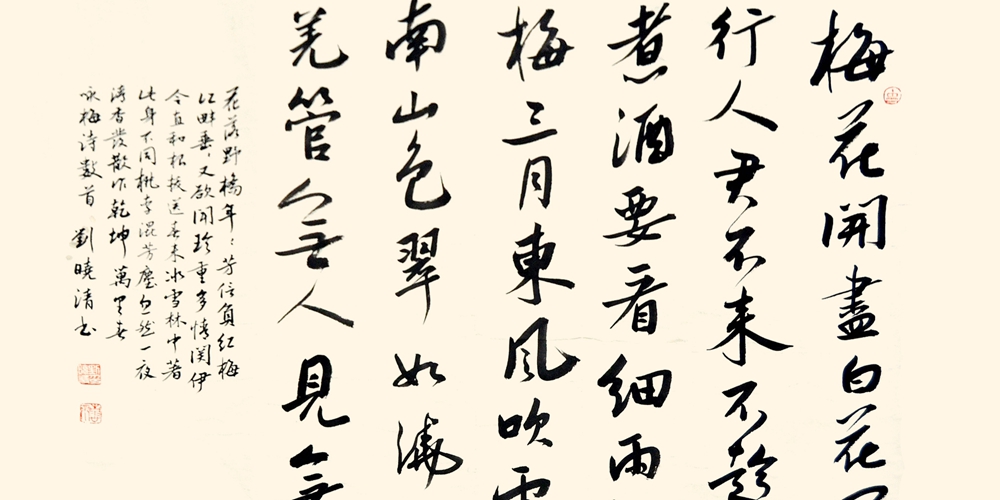 梅花開盡白花
行人君不来不趁
煮酒要看細雨
梅三月東風吹雪
南山色翠如澆
羌管無人見無
花落野橋年々芳信負紅梅
江畔垂々又欲開珍重多情関伊
令直和根拔送春来冰雪林中著
此身不同桃李混芳塵忽然一夜
清香發散作乾坤萬里春
咏梅诗數首 劉曉清书